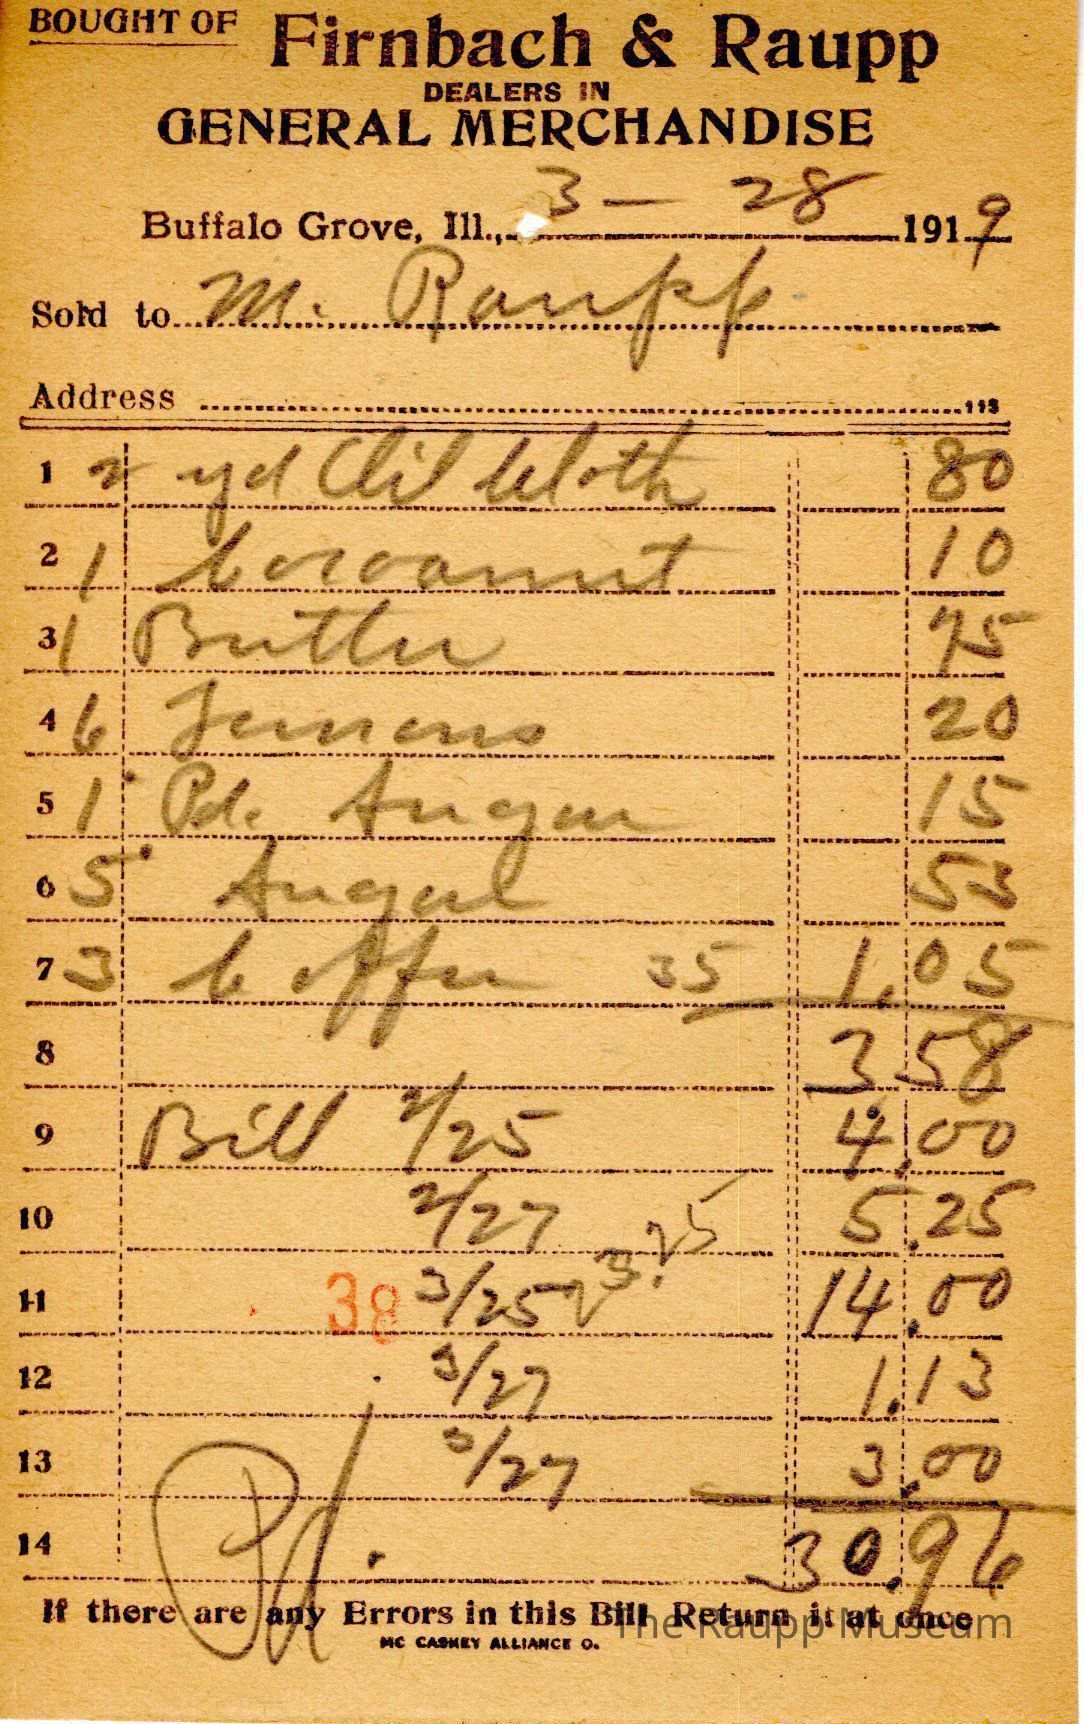 BOUGHT OF Firnbach & Raupp
DEALERS IN
GENERAL MERCHANDISE
Buffalo Grove, Ill., 3 - 28 1919
Sold to M. Raupp
Address
1 2 yd Oil Cloth 80
2 1 Cocoanut 10
3 1 Butter 75
4 6 Lemons 20
5 1 Pd. Sugar 15
6 5 Sugar 53
7 3 Coffee 35 1.05
8 3 58
9 Bill 2/25 4.00
10 2/27 5.25
11 38 3/25 14.00
12 3/27 1.13
13 3/27 3.00
14 Pd. 30.96
If there are any Errors in this Bill Return it at once
MC CASKEY ALLIANCE O.
The Raupp Museum